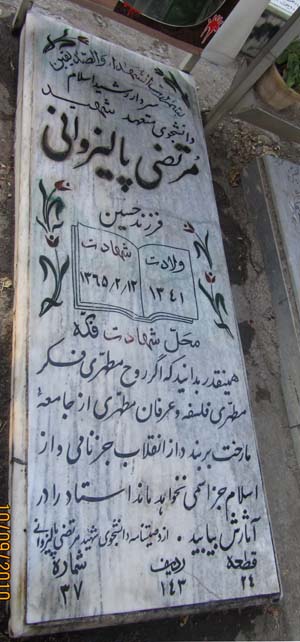 بسم رب الشهداء والصدیقین
سردار رشید اسلام
دانشجوی متعهد شهید
مرتضی پالیزوانی
فرزند حسین
ولادت
۱۳۴۱
شهادت
۱۳۶۵/۲/۱۳
محل شهادت فکه
همینقدر بدانید که اگر روح مطهری فکر
مطهری فلسفه و عرفان مطهری از جامعهٔ
ما رخت بربندد از انقلاب جز نامی و از
اسلام جز اسمی نخواهد ماند استاد را در
آثارش بیابید . از وصیتنامه دانشجوی شهید مرتضی پالیزوانی
قطعه ردیف شماره
۲۴ ۱۴۳ ۳۷
10/09/2010